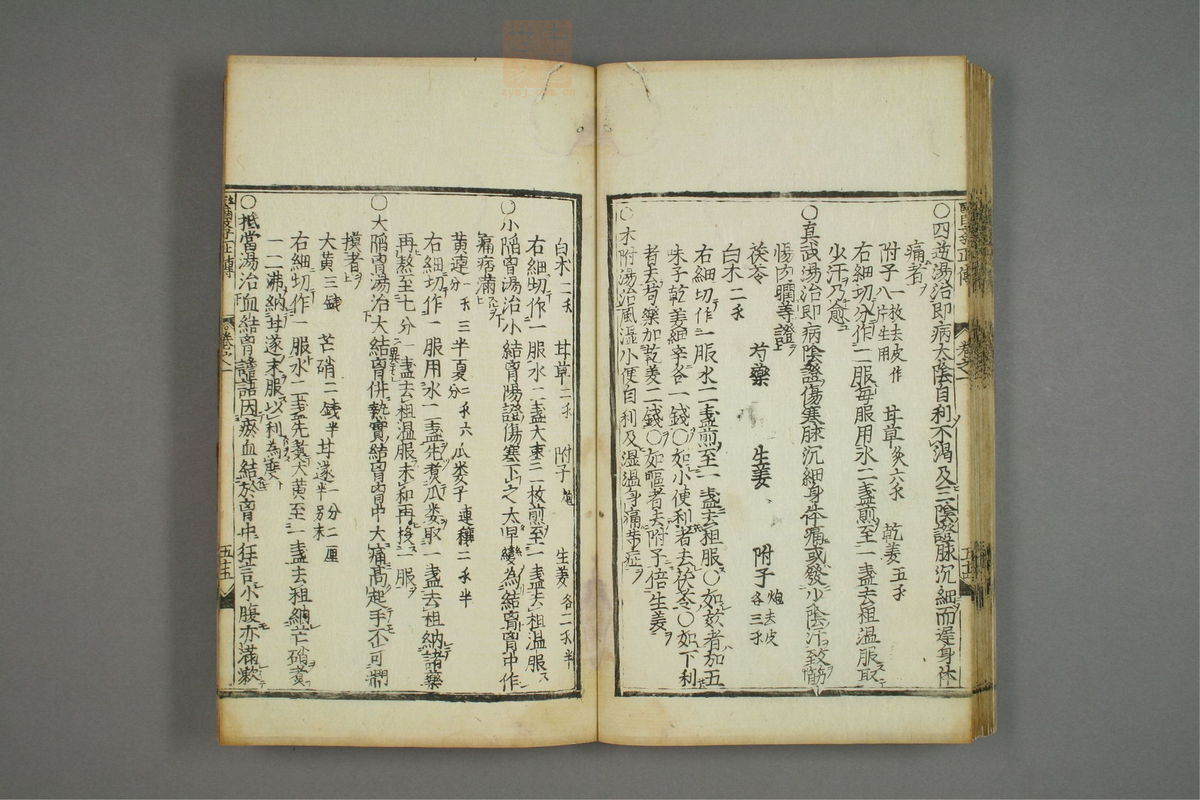 ○四逆湯治即病太陰自利不渴及三陰證脉沉細而遲身体
痛者
附子八片生用一枚去皮作 甘草炙六戔 乾姜五戔
右細切分作二服每服用水二盞煎至一盞去柤温服取
少汗乃愈
○真武湯治即病陰證傷寒脉沉細身体痛或發少陰汗致筋
惕肉瞤等證
茯苓 芍藥 生姜 附子炮去皮各三戔
白术二戔
右細切作一服水二盞煎至一盞去柤服○如欬者加五
味子乾姜細辛各一錢○如小便利者去茯苓○如下利
者去芍藥加乾姜二錢○如嘔者去附子倍生姜
○术附湯治風濕小便自利及湿温身痛等症
白术二戔 甘草二戔 附子炮 生姜各二戔半
右細切作一服水二盞大棗二枚煎至一盞去柤温服
○小陷胷湯治小結胷陽證傷寒下之太早變為結胷胷中作
痛痞滿
黄連一戔三分 半夏二戔六分 瓜蔞子連穰二戔半
右細切作一服用水二盞先煮瓜蔞取一盞去柤納諸藥
再熬至七分一盞去柤温服未和再投一服
○大陷胷湯治大結胷併熱實結胷胷中大痛高起手不可捫
摸者
大黄三錢 芒硝二錢半 甘遂一分二厘半另末
右細切作一服水二盞先煮大黄至一盞去柤納芒硝煮
一二沸納甘遂末服以利為度
○抵當湯治血結胷譫語因瘀血結於胷中狂言小腹亦滿漱
卷之一
五十五